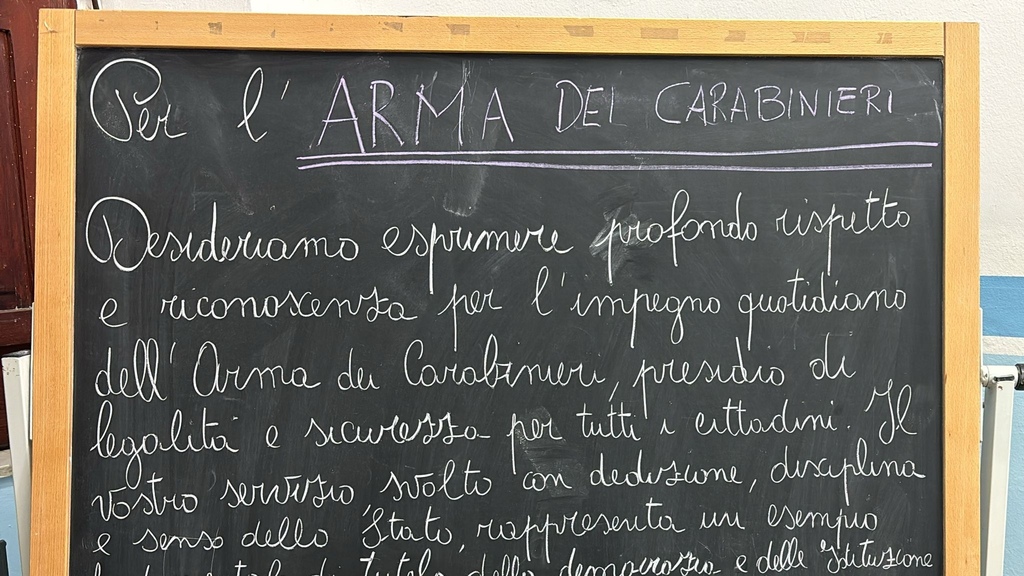 Per l' ARMA DEI CARABINIERI
Desideriamo esprimere profondo rispetto
e riconoscenza per l'impegno quotidiano
dell'Arma dei Carabinieri, presidio di
legalità e sicurezza per tutti i cittadini. Il
vostro servizio svolto con dedizione, disciplina
e senso dello Stato, rappresenta un esempio
di tutela della democrazia e delle Istituzione